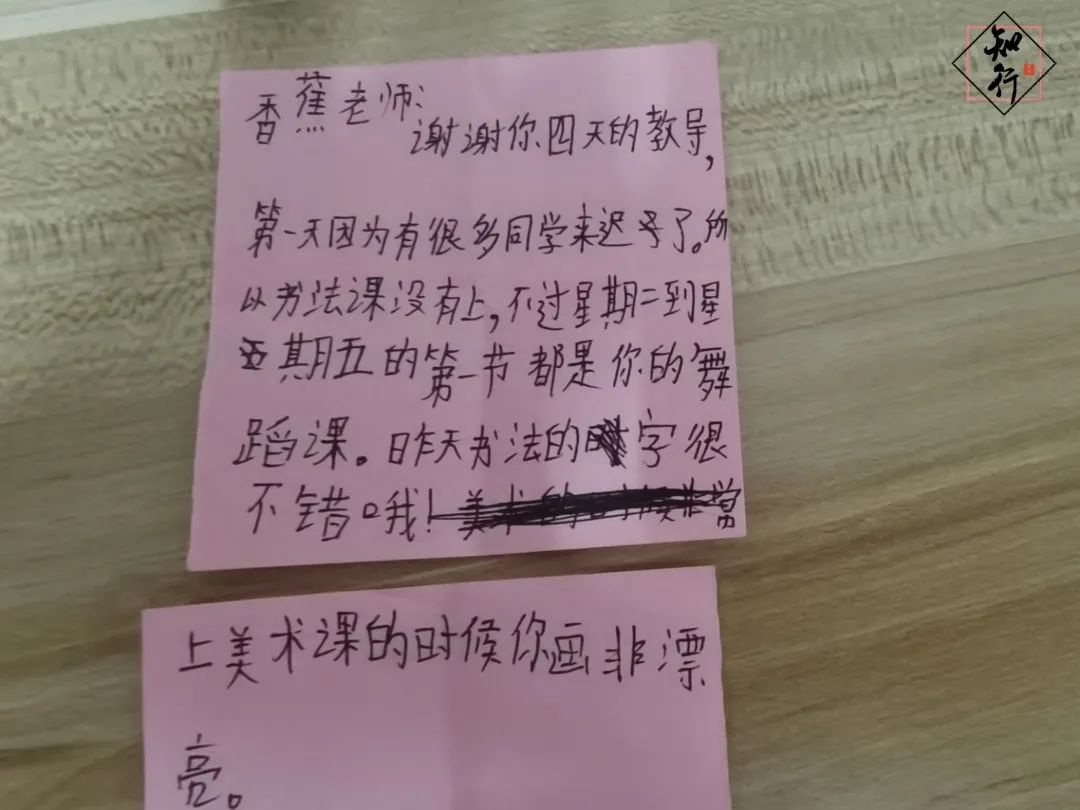 知行
香蕉老师：
谢谢你四天的教导，
第一天因为有很多同学来迟了。所
以书法课没有上，不过星期二到星
期五的第一节都是你的舞
蹈课。昨天书法的字很
不错哦！
上美术课的时候你画非漂
亮。